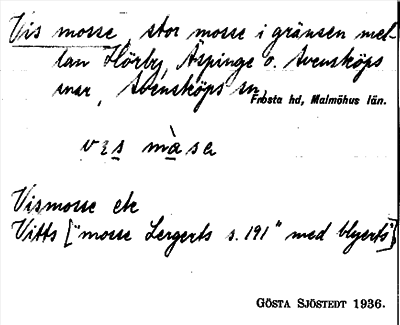 Vis mosse, stor mosse i gränsen mel-
lan Hörby, Äspinge o. Svensköps
snar, Svensköps sn,
Frosta hd, Malmöhus län.
vɛs màsa
Vismosse ek
Vitts ["mosse Lergerts s. 191" med blyerts]
GÖSTA SJÖSTEDT 1936.